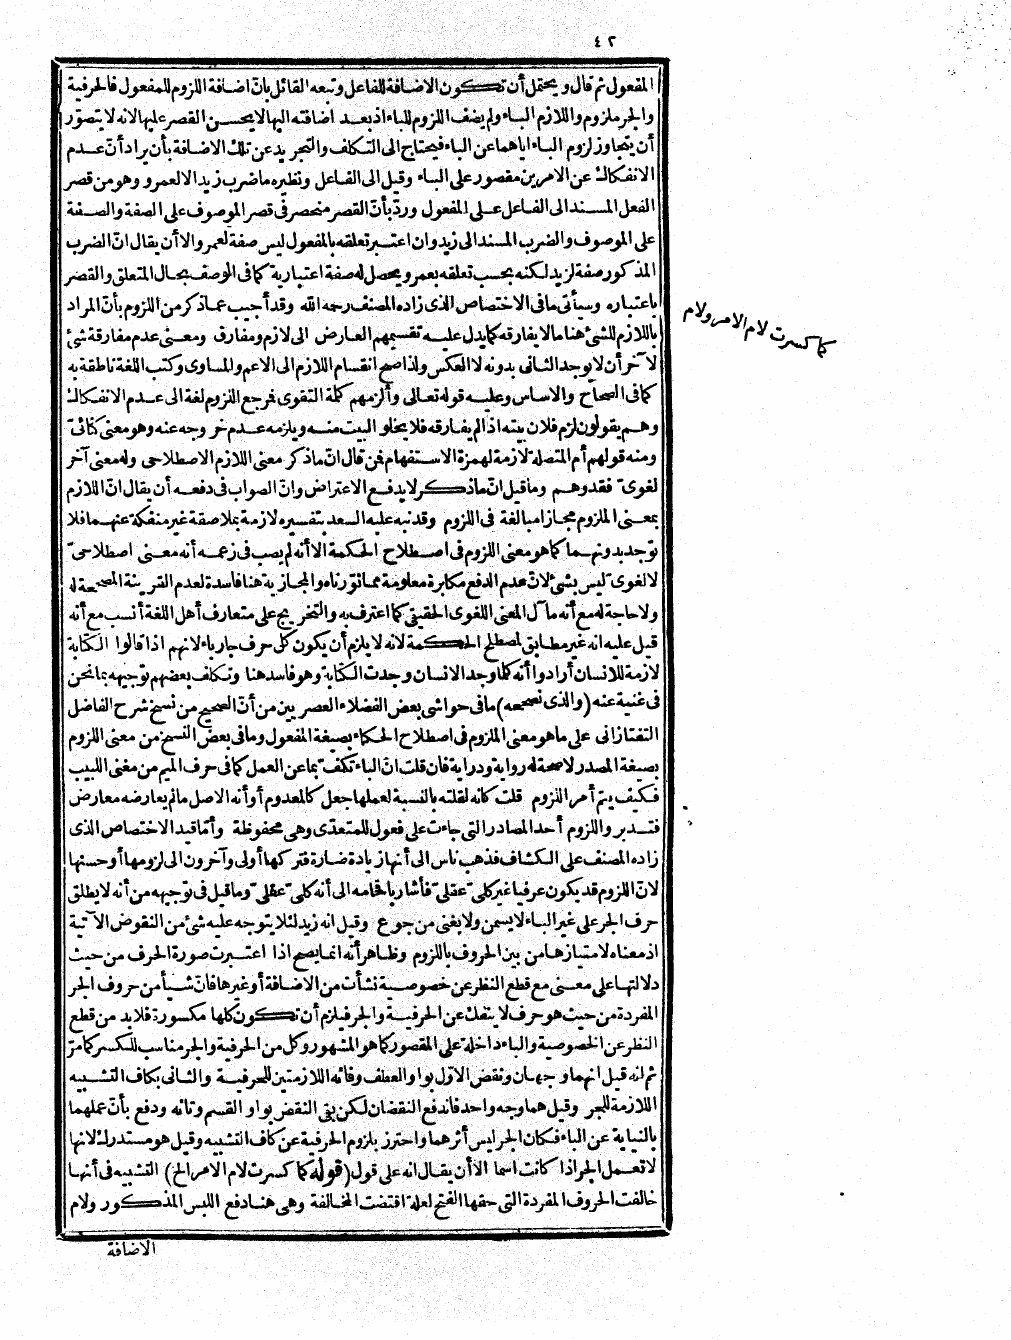 ٤٢
المفعول ثم قال ويحتمل أن تكون الاضافة للفاعل وتبعه القائل بانّ اضافة اللزوم للمفعول فالحرفية
والجر ملزوم واللازم الباء ولم يضف اللزوم للباء اذ بعد اضافته اليها لا يحسن القصر عليها لانه لا يتصوّر
أن يتجاوز لزوم الباء اياهما عن الباء فيحتاج الى التكلف والتجريد عن تلك الاضافة بأن يراد أنّ عدم
الانفكاك عن الامرين مقصور على الباء وقيل الى الفاعل ونظيره ما ضرب زيد الا لعمرو وهو من قصر
الفعل المسند الى الفاعل على المفعول وردّ بأنّ القصر منحصر فى قصر الموصوف على الصفة والصفة
على الموصوف والضرب المسند الى زيد وان اعتبر تعلقه بالمفعول ليس صفة لعمرو الا أن يقال انّ الضرب
المذكور صفة لزيد لكنه بحسب تعلقه بعمرو يحصل له صفة اعتبارية كما فى الوصف بحال المتعلق والقصر
باعتباره وسيأتى ما فى الاختصاص الذى زاده المصنف رحمه الله وقد أجيب عما ذكر من اللزوم بأنّ المراد
باللازم للشئ هنا ما لا يفارقه كما يدل عليه تقسيمهم العارض الى لازم ومفارق ومعنى عدم مفارقة شئ
لآخر أن لا يوجد الثانى بدونه لا العكس ولذا صح انقسام اللازم الى الاعم والمساوى وكتب اللغة ناطقة به
كما فى الصحاح والاساس وعليه قوله تعالى وألزمهم كلمة التقوى فرجع اللزوم لغة الى عدم الانفكاك
وهم يقولون لزم فلان بيته اذا لم يفارقه فلا يخلو البيت منه ويلزمه عدم خروجه عنه وهو معنى كنائىّ
ومنه قولهم أم المتصلة لازمة لهمزة الاستفهام فمن قال انّ ما ذكر معنى اللازم الاصطلاحى وله معنى آخر
لغوىّ فقد وهم وما قيل انّ ما ذكر لا يدفع الاعتراض وانّ الصواب فى دفعه أن يقال انّ اللازم
بمعنى الملزوم مجازا مبالغة فى اللزوم وقد نبه عليه السعد بتفسيره لازمة بملاصقة غير منفكة عنهما فلا
توجد بدونهما كما هو معنى اللزوم فى اصطلاح الحكمة الا أنه لم يصب فى زعمه أنه معنى اصطلاحىّ
لا لغوىّ ليس بشئ لانّ عدم الدفع مكابرة معلومة مما قررناه والمجازية هنا فاسدة لعدم القرينة المصححة له
ولا حاجة له مع أنه مآل المعنى اللغوى الحقيقى كما اعترف به والتخريج على متعارف أهل اللغة أنسب مع أنه
قيل عليه انه غير مطابق لمصطلح الحكمة لانه لا يلزم أن يكون كل حرف جار باء لانهم اذا قالوا الكتابة
لازمة للانسان أرادوا أنه كلما وجد الانسان وجدت الكتابة وهو فاسد هنا وتكلف بعضهم توجيهه بما نحن
فى غنية عنه (والذى نصححه) ما فى حواشى بعض الفضلاء العصريين من أنّ الصحيح من نسخ شرح الفاضل
التفتازانى على ما هو معنى الملزوم فى اصطلاح الحكماء بصيغة المفعول وما فى بعض النسخ من معنى اللزوم
بصيغة المصدر لا صحة له رواية ودراية فان قلت انّ الباء تكفّ بما عن العمل كما فى حرف الميم من مغنى اللبيب
فكيف يتم أمر اللزوم قلت كانه لقلته بالنسبة لعملها جعل كالمعدوم أو أنه الاصل ما لم يعارضه معارض
فتدبر واللزوم أحد المصادر التى جاءت على فعول للمتعدّى وهى محفوظة وأمّا قيد الاختصاص الذى
زاده المصنف على الكشاف فذهب ناس الى أنها زيادة ضارة فتركها أولى وآخرون الى لزومها أو حسنها
لانّ اللزوم قد يكون عرفيا غير كلىّ عقلىّ فأشار باقحامه الى أنه كلىّ عقلىّ وما قيل فى توجيهه من أنه لا يطلق
حرف الجر على غير الباء لا يسمن ولا يغنى من جوع وقيل انه زيد لئلا يتوجه عليه شئ من النقوض الآتية
اذ معناه لامتيازها من بين الحروف باللزوم وظاهر أنه انما يصح اذا اعتبرت صورة الحرف من حيث
دلالتها على معنى مع قطع النظر عن خصوصية نشأت من الاضافة أو غيرها فانّ شيأ من حروف الجر
المفردة من حيث هو حرف لا ينفك عن الحرفية والجر فيلزم أن تكون كلها مكسورة فلا بد من قطع
النظر عن الخصوصية والباء داخلة على المقصور كما هو المشهور وكل من الحرفية والجر مناسب للكسر كما مرّ
ثم انه قيل انهما وجهان ونقض الاوّل بواو العطف وفائه اللازمتين للحرفية والثانى بكاف التشبيه
اللازمة للجر وقيل هما وجه واحد فاندفع النقضان لكن بقى النقض بواو القسم وتائه ودفع بأنّ عملهما
بالنيابة عن الباء فكان الجر ليس أثرهما واحترز بلزوم الحرفية عن كاف التشبيه وقيل هو مستدرك لانها
لا تعمل الجر اذا كانت اسما الا أن يقال انه على قول (قوله كما كسرت لام الامر الخ) التشبيه فى أنها
خالفت الحروف المفردة التى حقها الفتح لعلة اقتضت المخالفة وهى هنا دفع اللبس المذكور ولام
الاضافة
كما كسرت لام الامر ولام